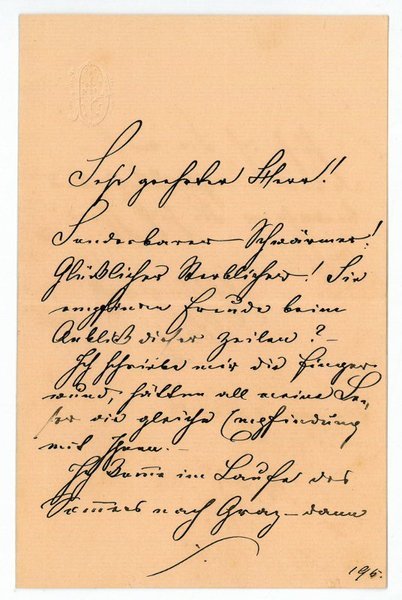 Sehr geehrter Herr!
Sonderbarer Schwärmer!
Glücklicher Sterblicher! Sie
empfinden Freude beim
Anblick dieser Zeilen? –
Ich schriebe mir die Finger
wund, hätten all meine Le„
ser die gleiche Empfindung
mit Ihnen. –
Ich komme im Laufe des
Sommers nach Graz – dann
195.